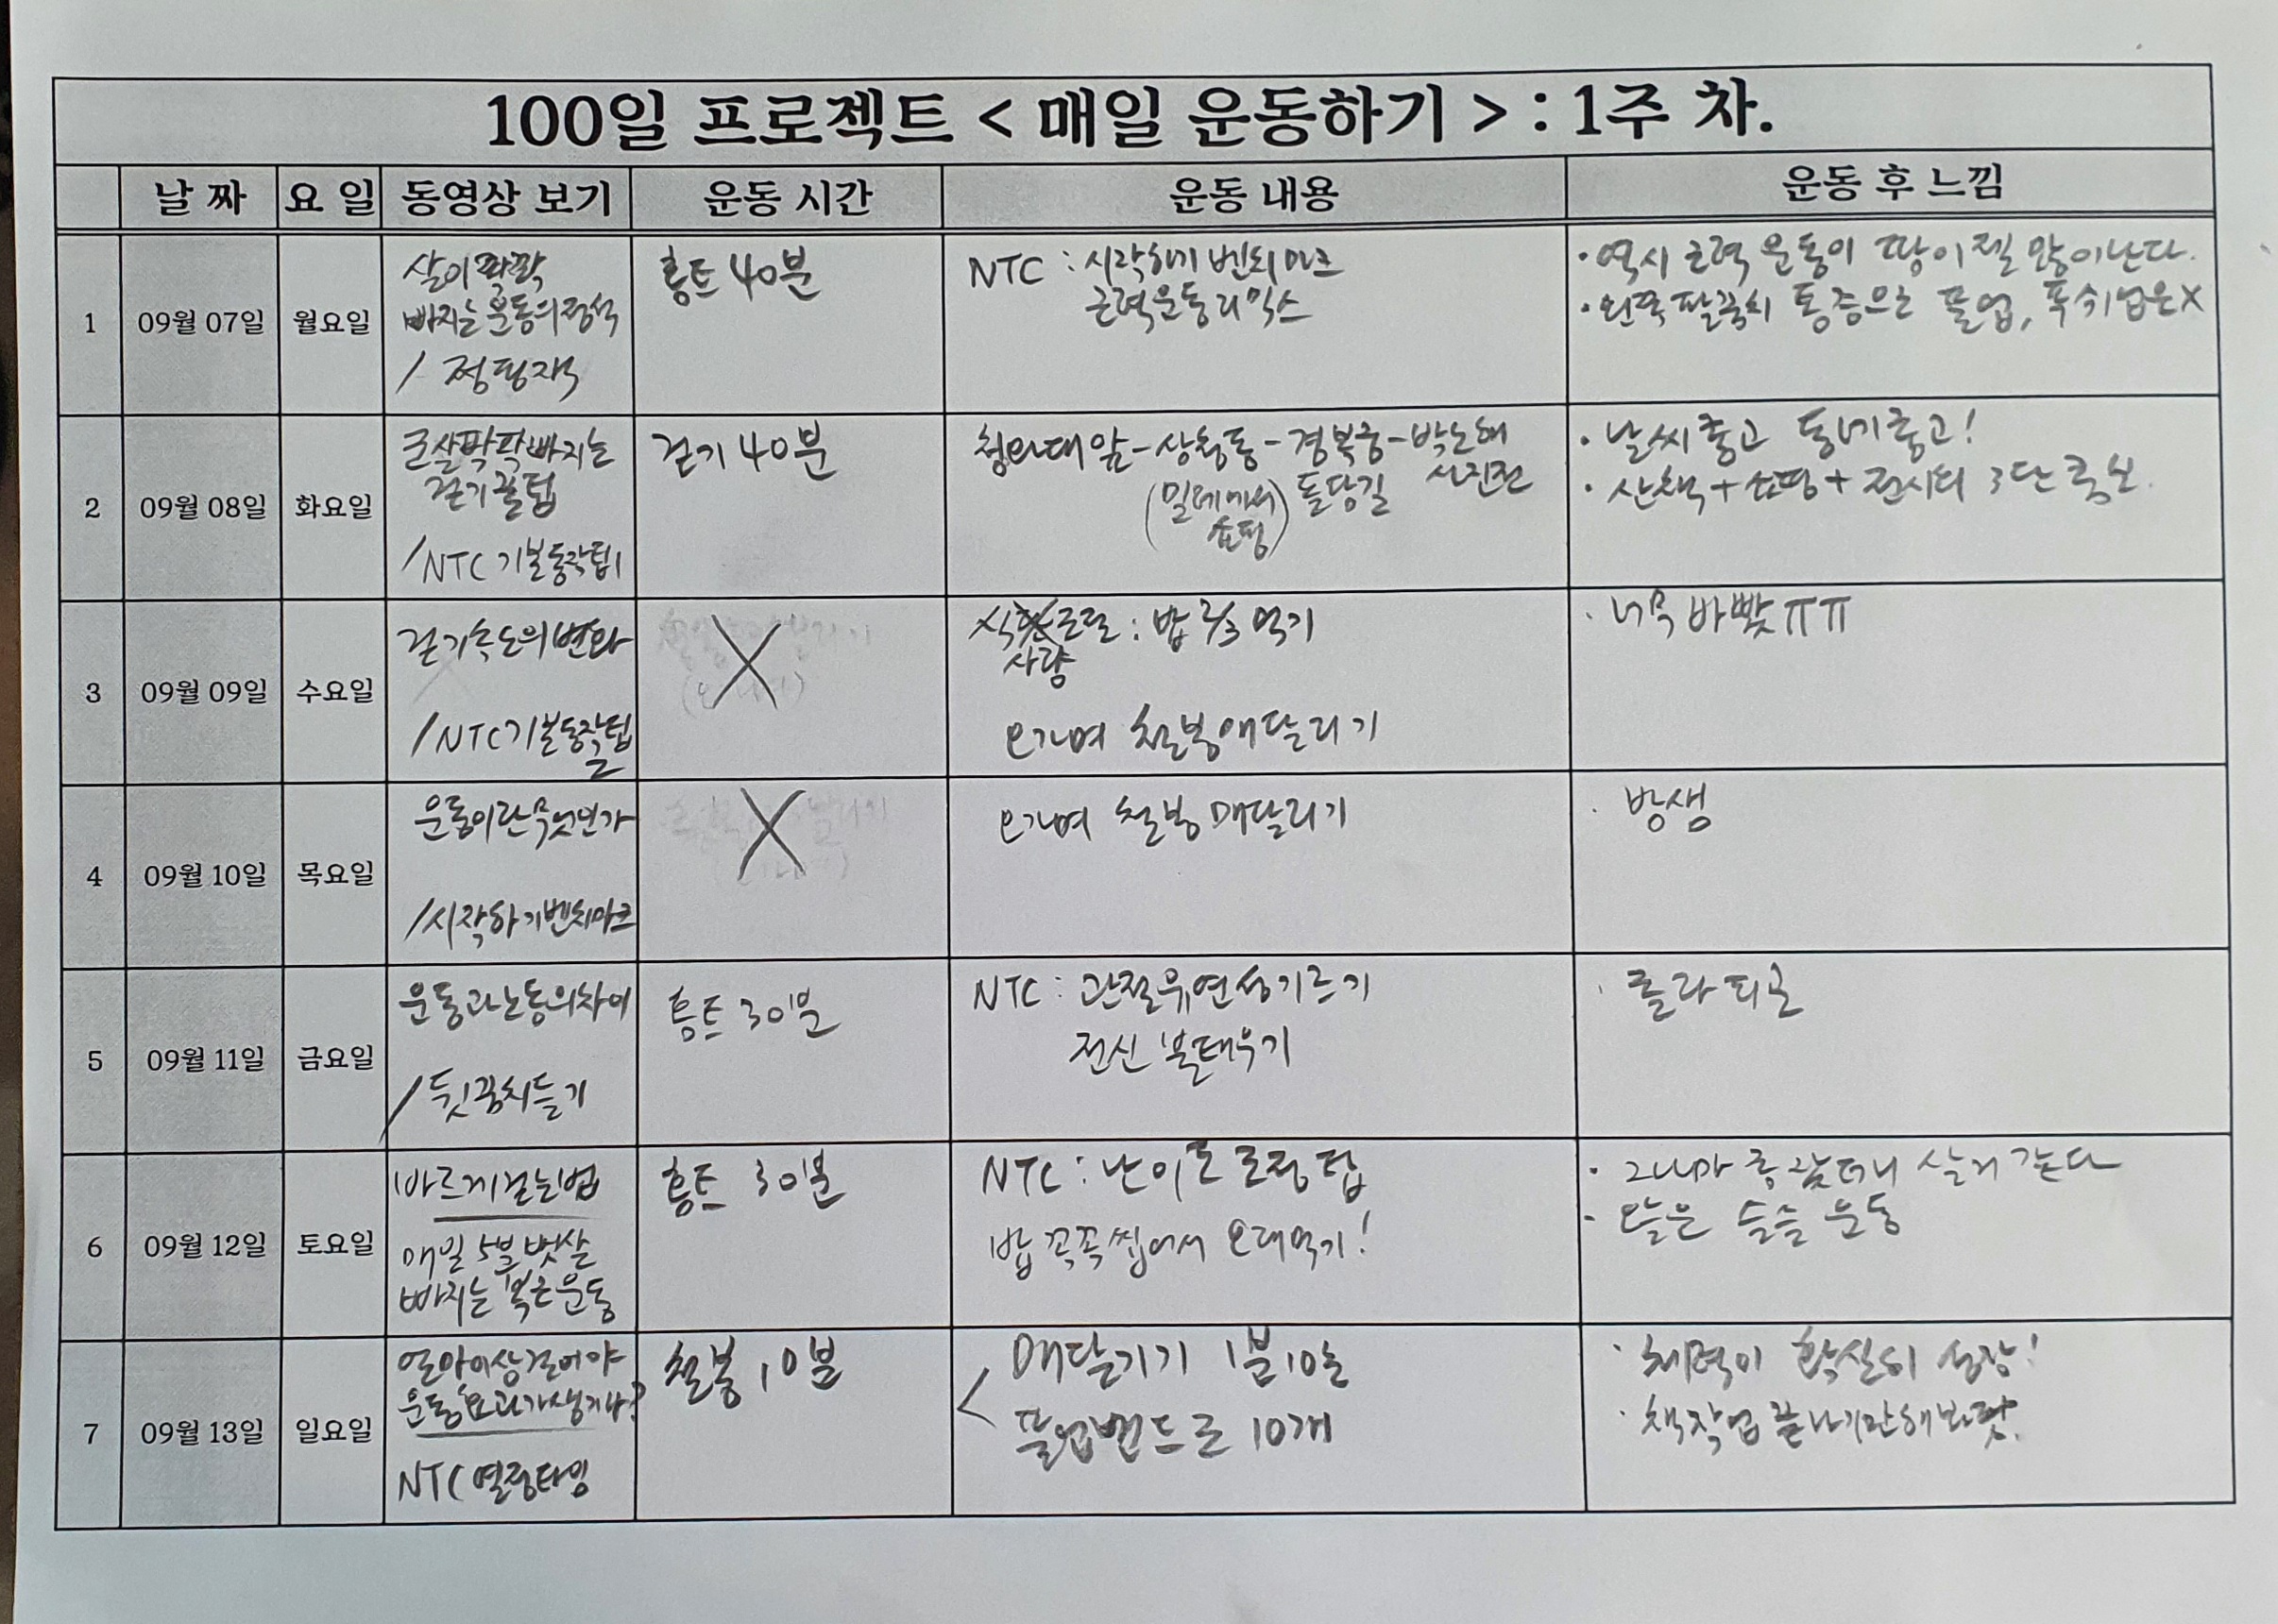 100일 프로젝트 < 매일 운동하기 > : 1주 차.
날 짜 요 일 동영상 보기 운동 시간 운동 내용 운동 후 느낌
1 09월 07일 월요일
살이 쫙쫙
빠지는 운동의 정석
/
홈트 40분
NTC : 시작하기 벤치마크
근력운동 리믹스
· 역시 근력 운동이 땀이 젤 많이 난다.
· 왼쪽 팔꿈치 통증으로 풀업, 푸쉬업은 X
2 09월 08일 화요일
군살 팍팍 빠지는
걷기 꿀팁
/NTC 기본동작팁1
걷기 40분
청와대 앞 - 삼청동 - 경복궁 - 박노해
(밀레에서 돌담길 사진전
쇼핑)
· 날씨 좋고 동네 좋고!
· 산책 + 쇼핑 + 전시회 3단 콤보.
3 09월 09일 수요일
걷기 속도의 변화
/NTC 기본동작팁
2
X
조절 : 밥 2/3 먹기
사량
오가며 철봉 매달리기
· 너무 바빴 ㅠㅠ
4 09월 10일 목요일
운동이란 무엇인가
/시작하기 벤치마크
X
오가며 철봉 매달리기
· 방생
5 09월 11일 금요일
운동과 노동의 차이
/뒷꿈치 들기
홈트 30분
NTC : 관절 유연성 기르기
전신 불태우기
· 졸라 피곤
6 09월 12일 토요일
바르게 걷는법
매일 5분 뱃살
빠지는 복근운동
홈트 30분
NTC : 난이도 조정 팁
밥 꼭꼭 씹어서 오래 먹기!
· 그나마 좀 잤더니 살거 같다
- 오늘은 슬슬 운동
7 09월 13일 일요일
얼마이상 걸어야
운동효과가 생기나?
NTC 열정타임
철봉 10분
매달리기 1분 10초
풀업밴드로 10개
· 체력이 확실히 성장!
· 책작업 끝나기만 해봐랏.